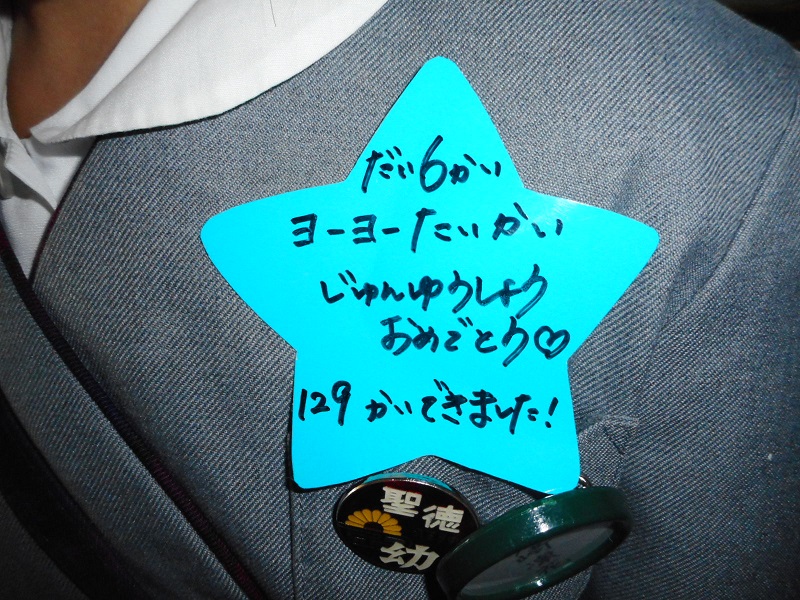 だい6かい
ヨーヨーたいかい
じゅんゆうしょう
おめでとう♡
129かいできました!
聖徳
幼